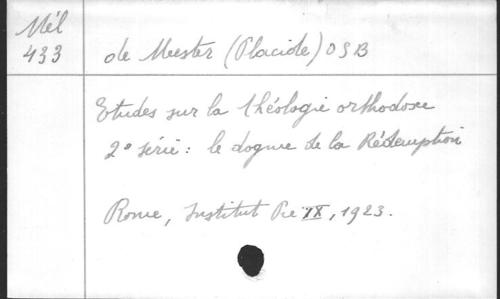 Mél
433
de Meester (Placide) OSB
Etudes sur la théologie orthodoxe
2° série : le dogme de la Rédemption
Rome, Institut Pie IX, 1923.